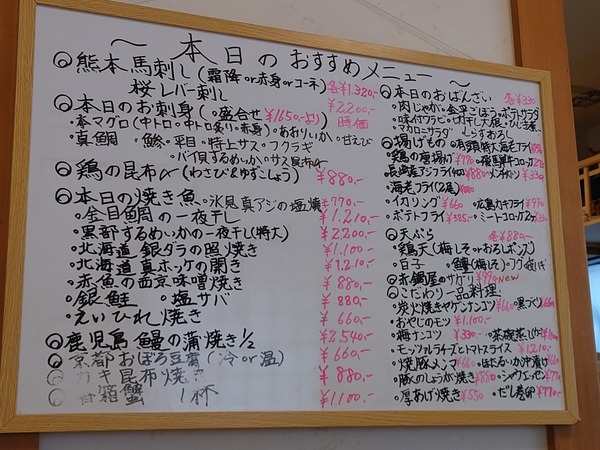 ～本日のおすすめメニュー～
熊本馬刺し(霜降or赤身orコーネ) 各¥1,320-
桜レバー刺し ¥2,200-
本日のお刺身(盛合せ ¥1650-より) 時価
・本マグロ(中トロ・中トロ炙り・赤身)・あおりいか・甘えび
・真鯛 ・鯵・平目・特上サス・フクラギ
・バイ貝するめいか・サス昆布〆
鶏の昆布〆(わさび&ゆずこしょう) ¥880-
本日の焼き魚・氷見真アジの塩焼 ¥770-
・金目鯛の一夜干し ¥1,210-
・黒部するめいかの一夜干し(特大) ¥2,200-
・北海道 銀ダラの照焼き ¥1,100-
・北海道 真ホッケの開き ¥1,210-
・赤魚の西京味噌焼き ¥880-
・銀鮭 ・塩サバ ¥880-
・えいひれ焼き ¥660-
鹿児島 鰻の蒲焼き1/2 ¥2,540-
京都おぼろ豆腐(冷or温) ¥660-
昆布焼き ¥880-
香箱蟹 1杯 ¥1,100-
本日のおばんざい 各¥330
・肉じゃが・金平ごぼう・ポテトサラダ
・味付ワラビ・切干し大根・ひじき煮
・マカロニサラダ ・しらすおろし
揚げもの・有頭特大海老フライ
・鶏の唐揚げ ¥770・飛騨牛コロッケ
・長崎産アジフライ ¥880・メンチカツ ¥330
・海老フライ(2尾)
・イカリング ¥660 ・広島カキフライ ¥990
・ポテトフライ ¥385- ・ミートコロッケ
天ぷら 各¥880-
・鶏天(梅しそorおろしポン酢)
・白子 ・鱚(梅しそ)
赤鍋屋のサゲリ ¥990 NEW
こだわり一品料理
・炭火焼きヤゲンナンコツ ¥660・黒づくり
・おやじのモツ ¥1,100-
・梅ナンコツ ¥330- ・茶碗蒸し
・モッツァレラチーズとトマトスライス ¥1,210-
・焼豚メンマ ¥660・ほたるいか沖漬け
・豚のしょうが焼き ¥880・シャウエッセン ¥770
・厚あげ焼き ¥550 ・だし巻卵 ¥770